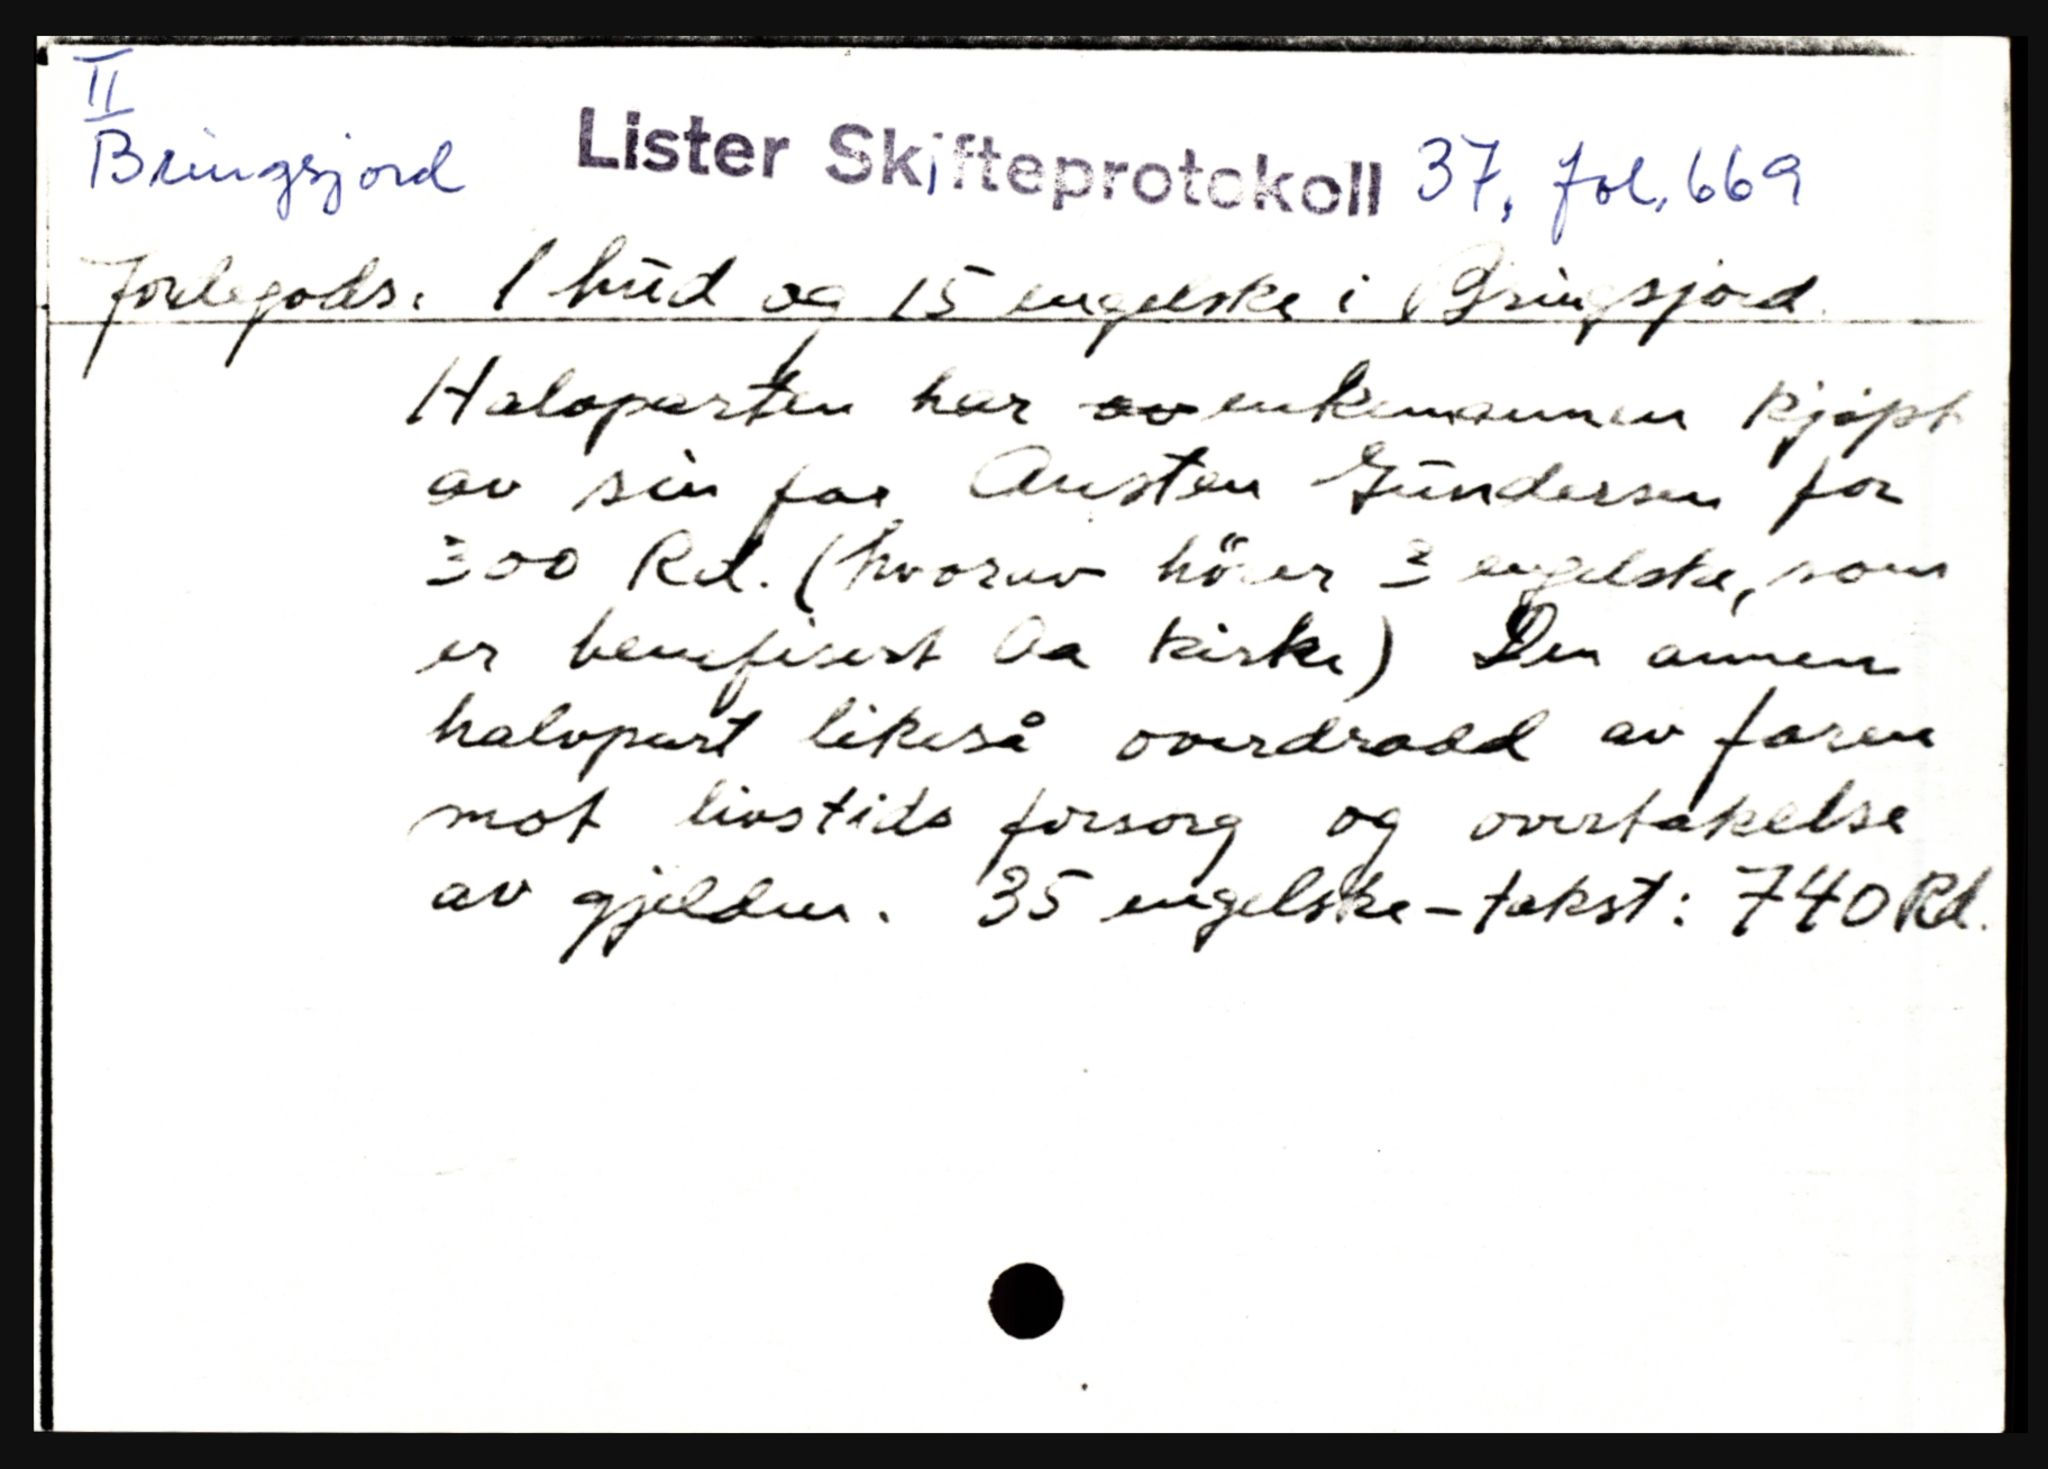 II
Bringsjord Lister Skifteprotokoll 37, fol. 669
Jordegods: 1 hud og 15 engelske i Bringsjord.
Halvparten har av enkemannen kjøpt
av sin far Austen Gundersen for
300 Rd. (hvorav hörer 3 engelske, som
er benefisert Aa kirke) Den annen
halvpart likeså overdradd av faren
mot livstids forsorg og overtakelse
av gjelden. 35 engelske - takst: 740 Rd.